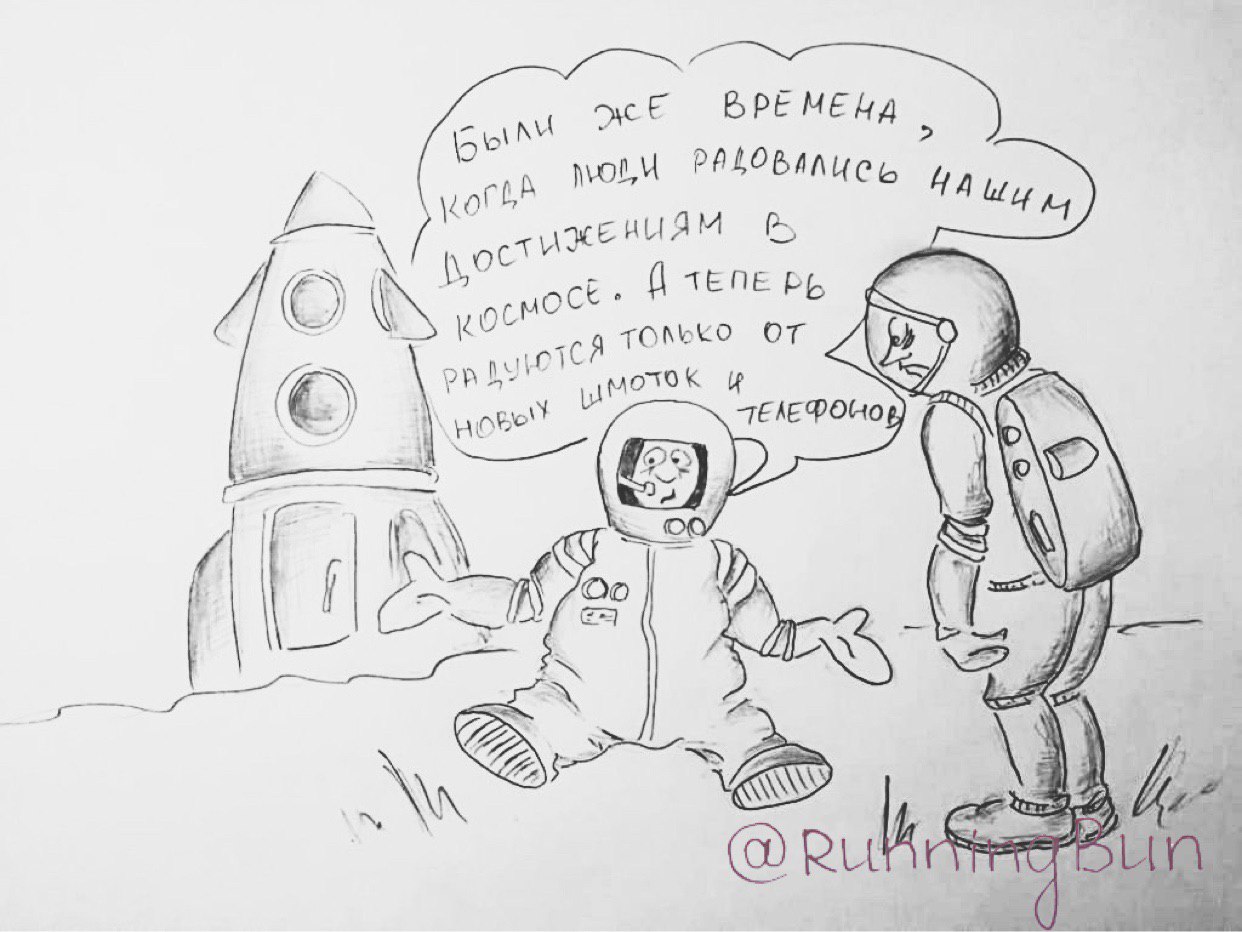 Были же времена,
когда люди радовались нашим
достижениям в
космосе. А теперь
радуются только от
новых шмоток и
телефонов
@RunningBun